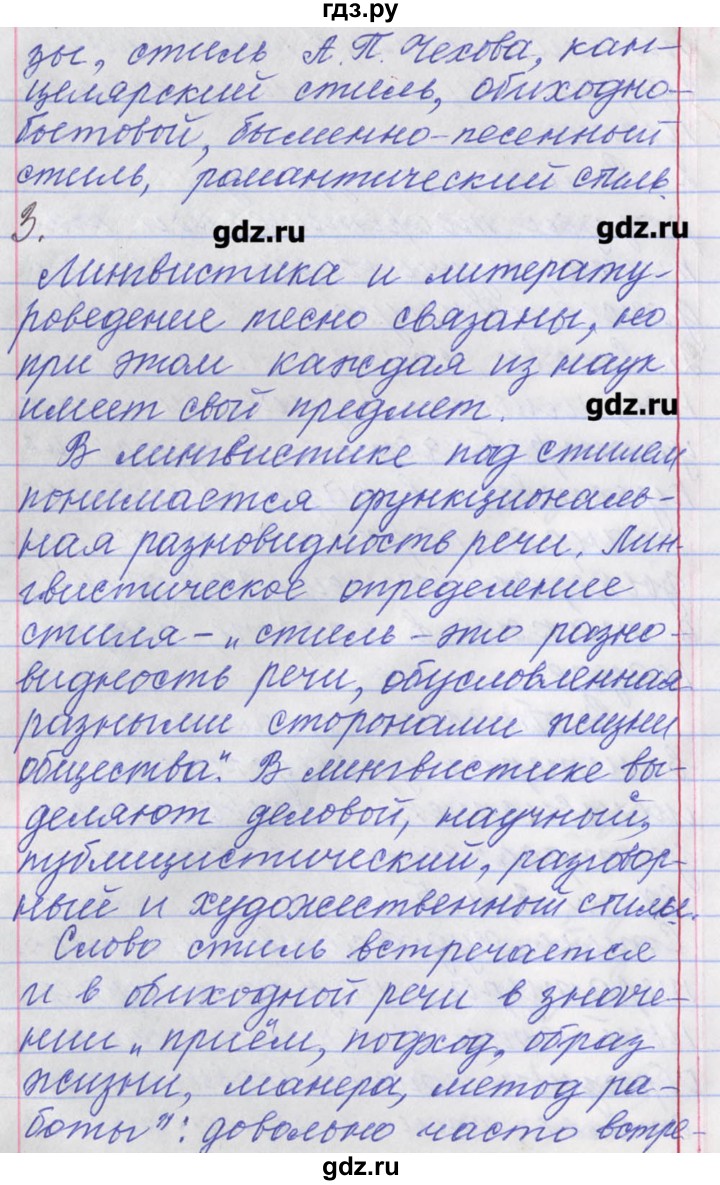 гдз.ру
зы, стиль А. П. Чехова, кан-
целярский стиль, обиходно-
бытовой, былинно-песенный
стиль, романтический стиль.
3.
gdz.ru
gdz.ru
Лингвистика и литерату-
роведение тесно связаны, но
при этом каждая из наук
имеет свой предмет.
gdz.ru
В лингвистике под стилем
понимается функциональ-
ная разновидность речи. Лин-
гвистическое определение
стиля - „стиль - это разно-
видность речи, обусловленная
разными сторонами жизни
общества". В лингвистике вы-
деляют деловой, научный,
публицистический, разговор-
ный и художественный стили.
Слово стиль встречается
и в обиходной речи в значе-
нии „приём, подход, образ
жизни, манера, метод ра-
боты": довольно часто встре-
gdz.ru